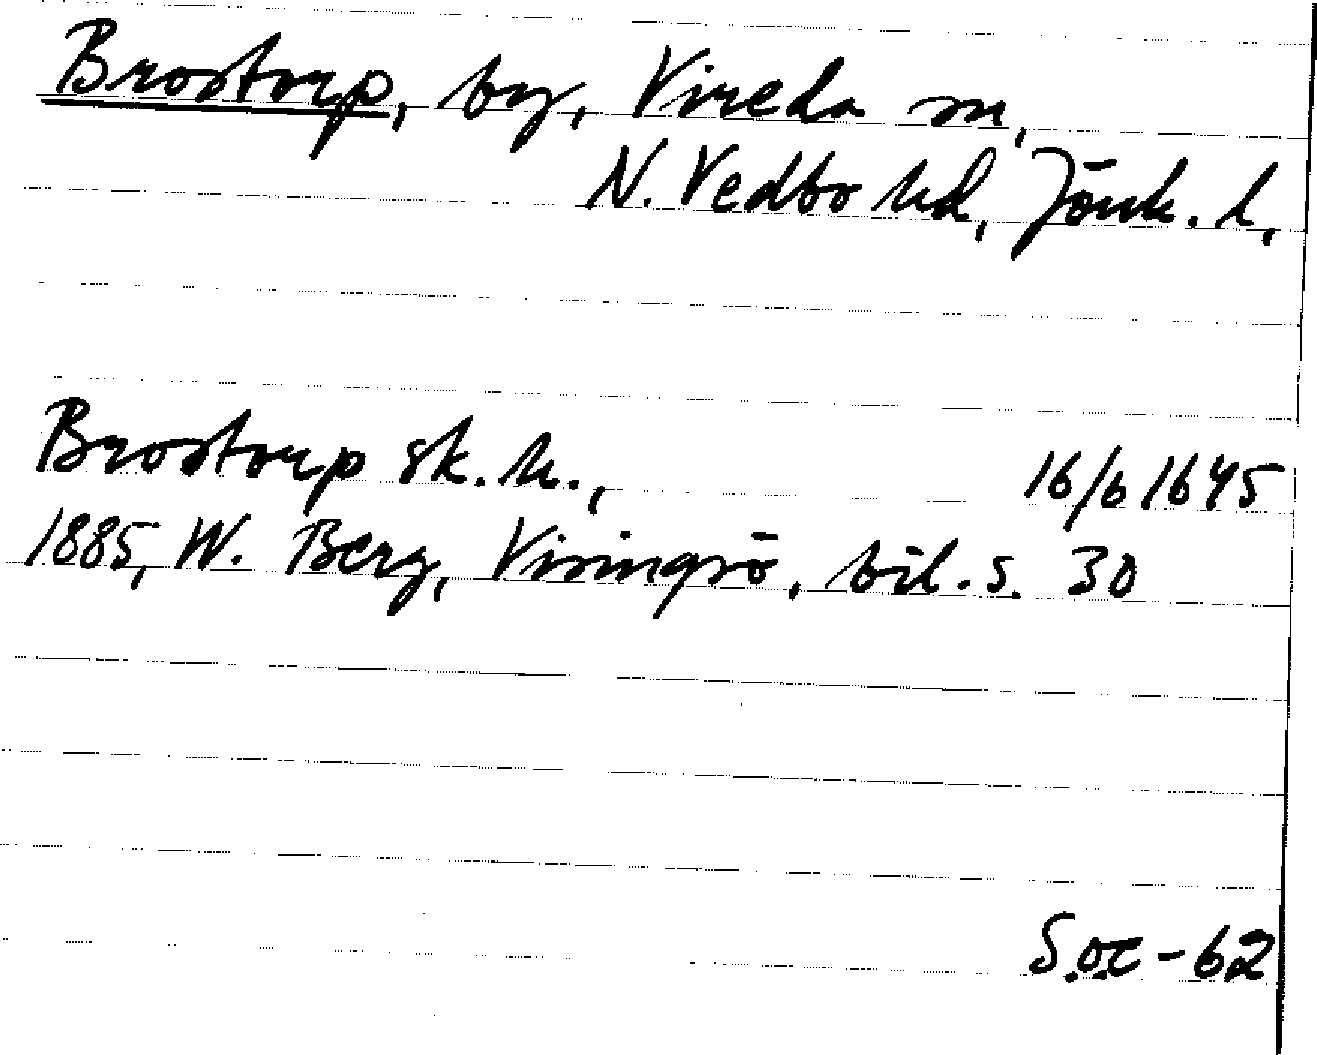 Brostorp, by, Vireda sn,
N. Vedbo hd, Jönk. l.
Brostorp sk. h., 16/6 1645
1885, W. Berg, Visingsö, bil. s. 30
S.oc-62